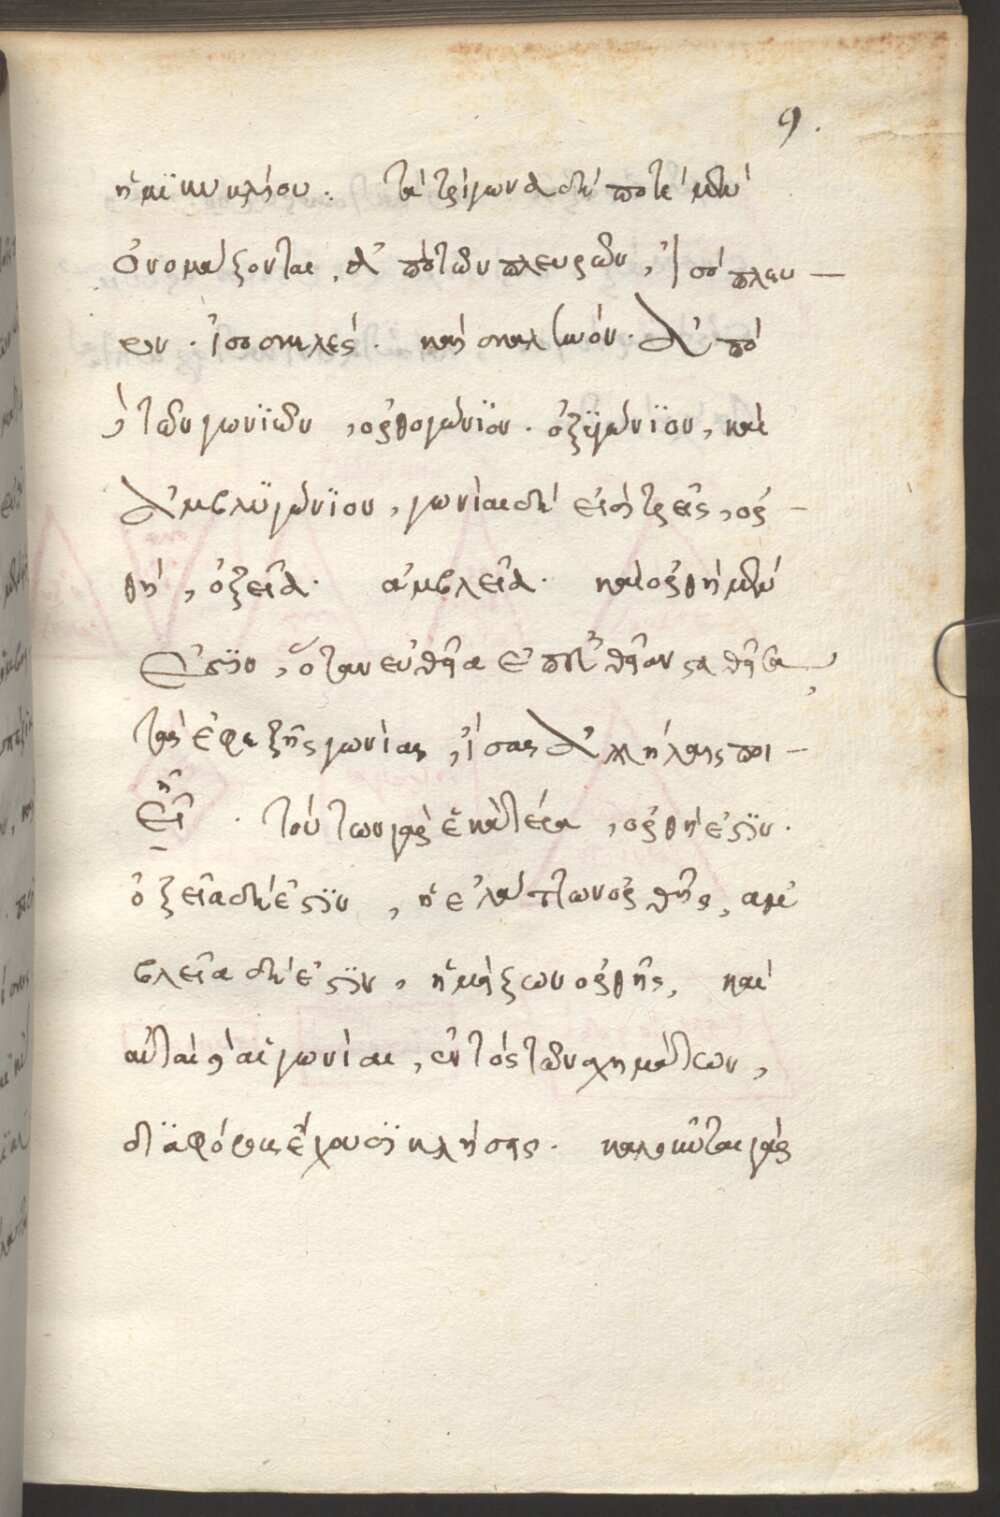 9.
ἡμϊκυκλίου. τὰ τρίγωνα δὲ ποτὲ μὲν
ὀνομάζονται, ἀπὸ τῶν πλευρῶν, ἰσόπλευ—
ρον. ἰσοσκελές. καὶ σκαληνόν. ἀπὸ
τῶν γωνϊῶν, ὀρθογώνϊον. ὀξϋγώνϊον, καὶ
ἀμβλϋγώνϊον, γωνίαι δέ εἰσὶ τρεῖς, ὀρ—
θή, ὀξεῖα. ἀμβλεῖα. καὶ ὀρθὴ μέν
ἐστϊν, ὅταν εὐθεῖα ἐπ᾽ εὐθεῖαν σταθεῖσα,
τὰς ἐφεξῆς γωνίας, ἴσας ἀλλήλαις ποι—
εῖ ῇ. τούτων γὰρ ἑκατέρα, ὀρθή ἐστϊν.
ὀξεῖα δέ ἐστϊν, ἡ ἐλάττων ὀρθῆς, ἀμ
βλεῖα δέ ἐστϊν, ἡ μείζων ὀρθῆς, καὶ
αὗται αἱ γωνίαι, ἐντὸς τῶν σχημάτων,
δϊαφόρους ἔχουσϊ κλήσεις. καλοῦνται γὰρ